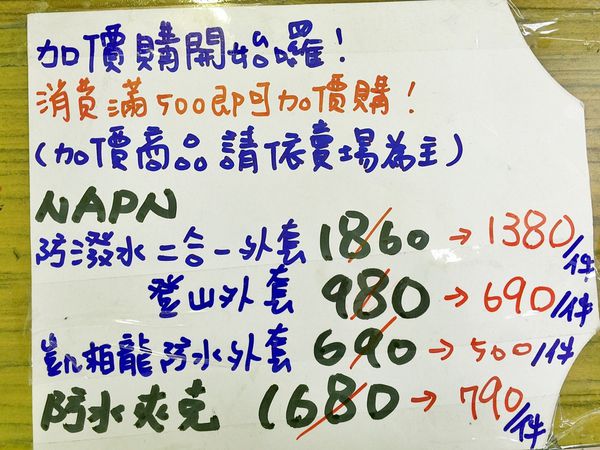 加價購開始囉！
消費滿500即可加價購！
(加價商品請依賣場為主)
NAPN
防潑水二合一外套 1860→1380/件
登山外套 980→690/件
凱柏龍防水外套 690→500/件
防水夾克 1680→790/件